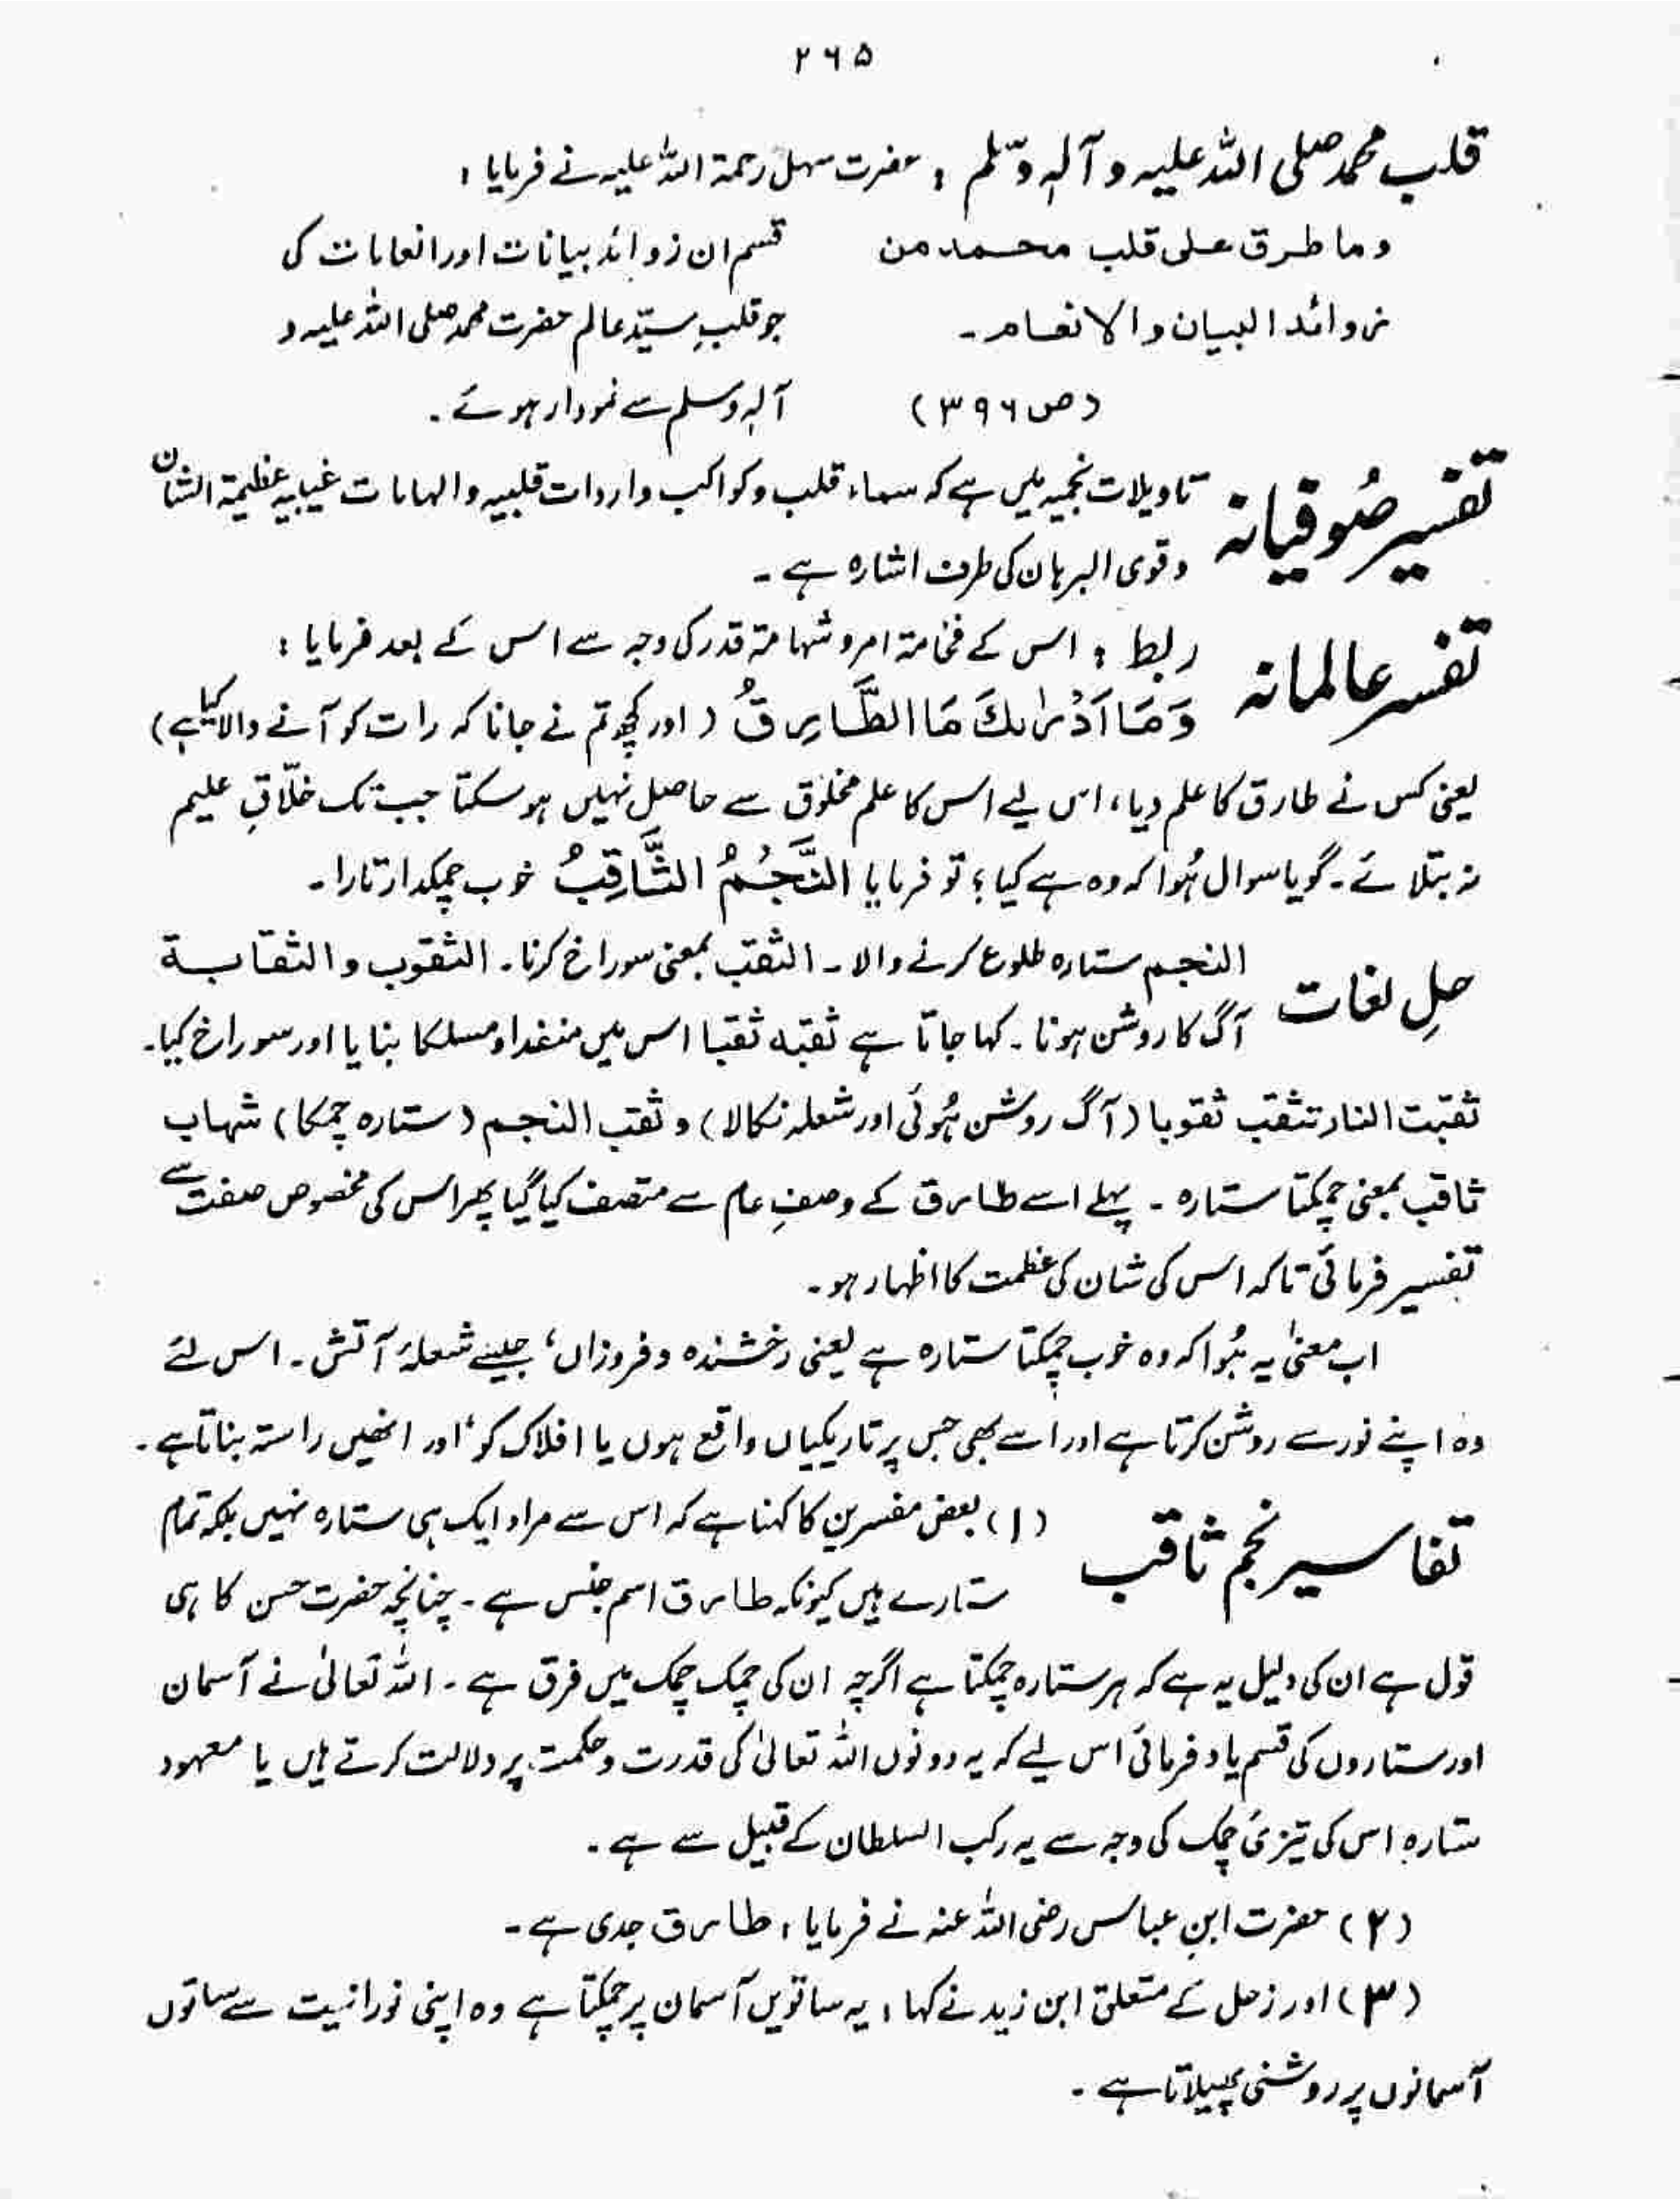 ۲۶۵
قلب محمد صلی اللہ علیہ و آلہٖ وسلم : حضرت سہل رحمۃ اللہ علیہ نے فرمایا :
وما طرق علی قلب محمد من
زوائد البیان والانعام۔
(ص ۳۹۶)
قسم ان زوائد بیانات اور انعامات کی
جو قلبِ سیّدِ عالم حضرت محمد صلی اللہ علیہ و
آلہٖ وسلم سے نمودار ہوئے۔
تفسیر صُوفیانہ
تاویلات نجمیہ میں ہے کہ سماء قلب و کواکب واردات قلبیہ و الہامات غیبیہ عظیمۃ الشان
و قوی البرہان کی طرف اشارہ ہے۔
تفسیر عالمانہ
ربط : اس کے فخامۃ امر و شہامۃ قدر کی وجہ سے اس کے بعد فرمایا :
وَمَآ اَدْرٰىكَ مَا الطَّارِقُ (اور کچھ تم نے جانا کہ رات کو آنے والا کیا ہے)
یعنی کس نے طارق کا علم دیا، اس لیے اس کا علم مخلوق سے حاصل نہیں ہو سکتا جب تک خلّاقِ علیم
نہ بتلائے۔ گویا سوال ہُوا کہ وہ ہے کیا؟ تو فرمایا النَّجْمُ الثَّاقِبُ خوب چمکدار تارا۔
حلِ لغات
النجم ستارہ طلوع کرنے والا۔ الثقب بمعنی سوراخ کرنا۔ الثقوب والثقابۃ
آگ کا روشن ہونا۔ کہا جاتا ہے ثقبہ ثقبا اس میں منفذا و مسلکا بنایا اور سوراخ کیا۔
ثقبت النار تثقب ثقوبا (آگ روشن ہُوئی اور شعلہ نکالا) و ثقب النجم (ستارہ چمکا) شہاب
ثاقب بمعنی چمکتا ستارہ۔ پہلے اسے طارق کے وصفِ عام سے متصف کیا گیا پھر اس کی مخصوص صفت سے
تفسیر فرمائی تاکہ اس کی شان کی عظمت کا اظہار ہو۔
اب معنیٰ یہ ہُوا کہ وہ خوب چمکتا ستارہ ہے یعنی رخشندہ و فروزاں، جیسے شعلۂ آتش۔ اس لئے
وہ اپنے نور سے روشن کرتا ہے اور اسے بھی جس پر تاریکیاں واقع ہوں یا افلاک کو، اور انھیں راستہ بناتا ہے۔
تفاسیر نجم ثاقب
(۱) بعض مفسرین کا کہنا ہے کہ اس سے مراد ایک ہی ستارہ نہیں بلکہ تمام
ستارے ہیں کیونکہ طارق اسم جنس ہے۔ چنانچہ حضرت حسن کا ہی
قول ہے ان کی دلیل یہ ہے کہ ہر ستارہ چمکتا ہے اگرچہ ان کی چمک چمک میں فرق ہے۔ اللہ تعالیٰ نے آسمان
اور ستاروں کی قسم یاد فرمائی اس لیے کہ یہ دونوں اللہ تعالیٰ کی قدرت و حکمت پر دلالت کرتے ہیں یا معہود
ستارہ اس کی تیزیٔ چمک کی وجہ سے یہ رکب السلطان کے قبیل سے ہے۔
(۲) حضرت ابن عباس رضی اللہ عنہ نے فرمایا، طارق جدی ہے۔
(۳) اور زحل کے متعلق ابن زید نے کہا، یہ ساتویں آسمان پر چمکتا ہے وہ اپنی نورانیت سے ساتوں
آسمانوں پر روشنی پھیلاتا ہے۔